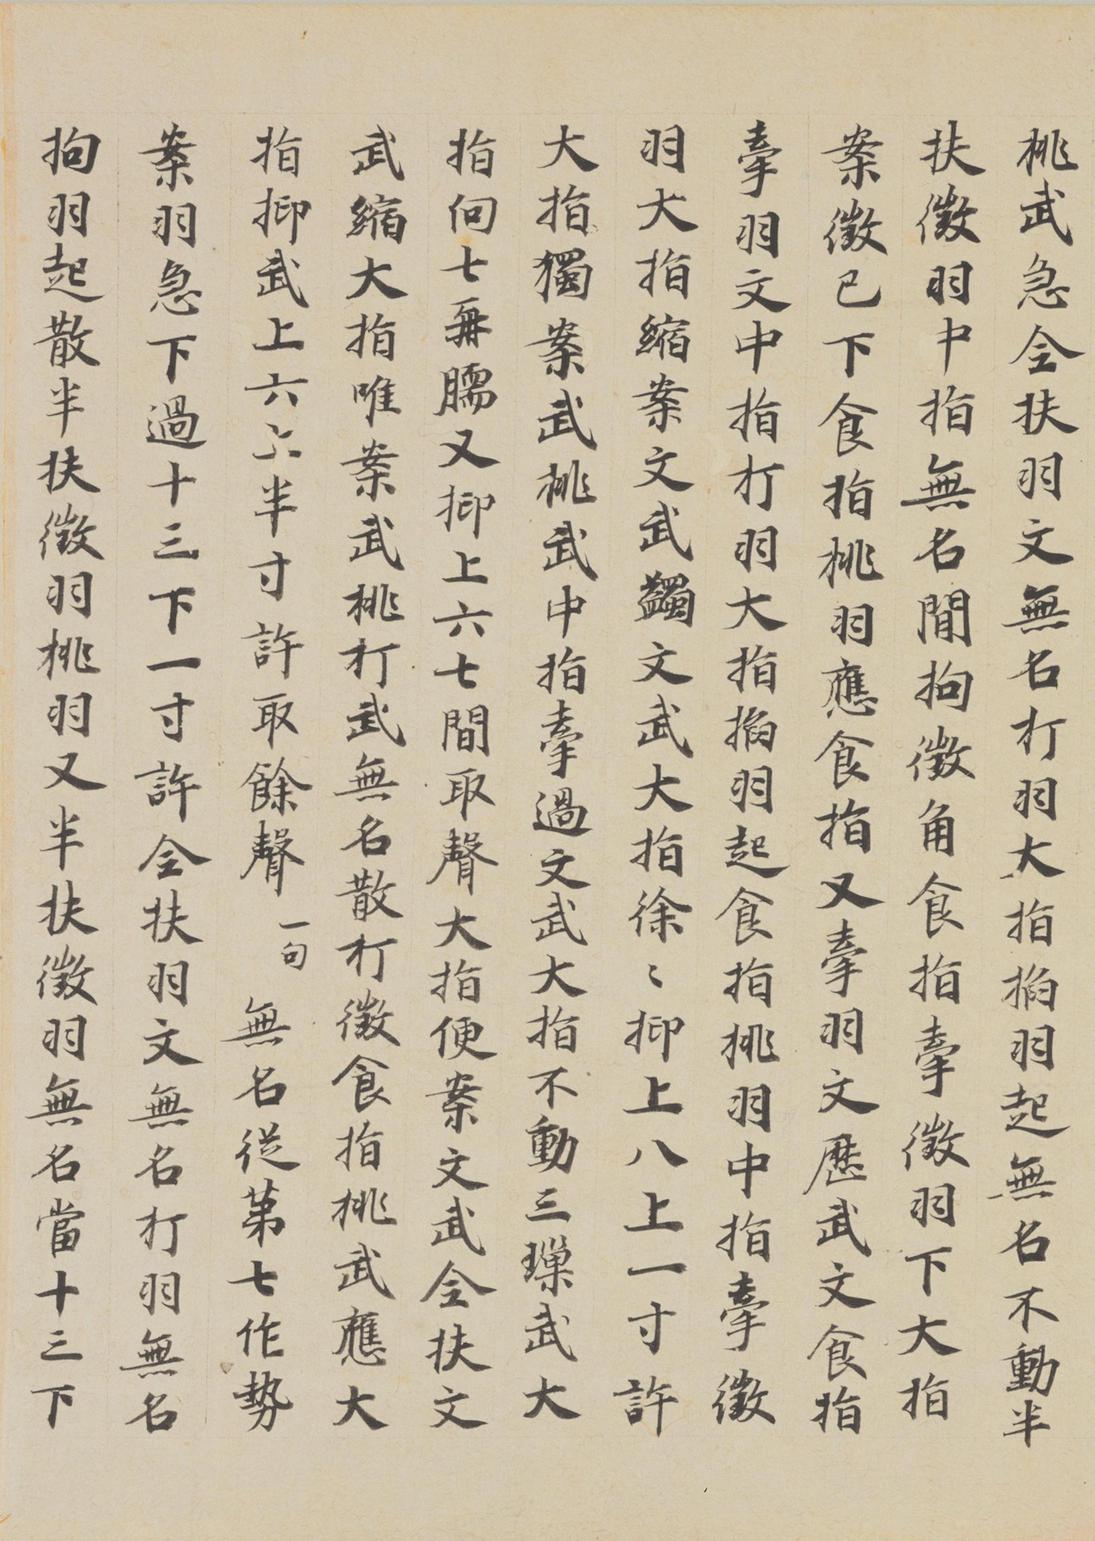 桃武急全扶羽文無名打羽大指掐羽起無名不動半
扶徵羽中指無名間拘徵角食指牽徵羽下大指
案徵已下食指桃羽應食指又牽羽文歷武文食指
牽羽文中指打羽大指掐羽起食指桃羽中指牽徵
羽大指縮案文武蠲文武大指徐〻抑上八上一寸許
大指獨案武桃武中指牽過文武大指不動三璅武大
指向七羃臑又抑上六七間取聲大指便案文武全扶文
武縮大指唯案武桃打武無名散打徵食指桃武應大
指抑武上六六半寸許取餘聲 一句 無名從第七作勢
案羽急下過十三下一寸許全扶羽文無名打羽無名
拘羽起散半扶徵羽桃羽又半扶徵羽無名當十三下